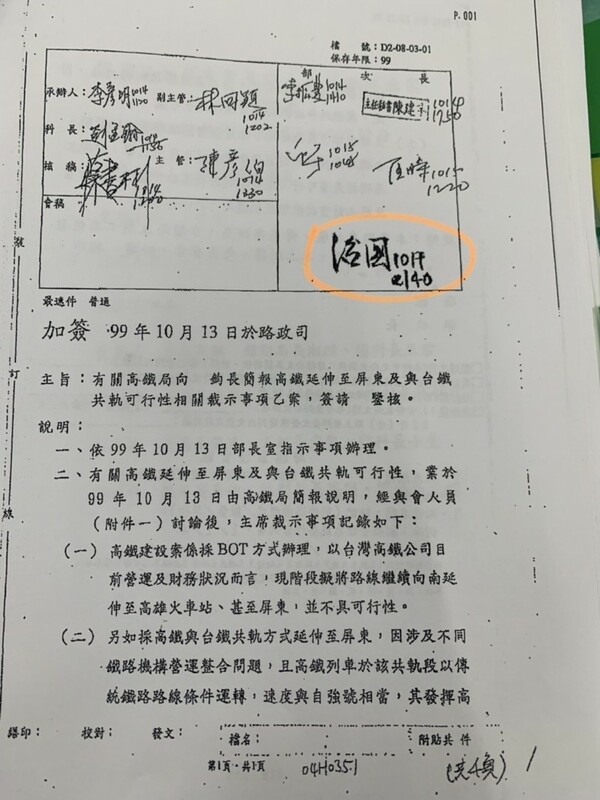 P. 001
檔 號：D2-08-03-01
保存年限：99
承辦人：
副主管：
部 次 長
科 長：
核 稿：
主 管：
會稿
主任秘書陳建宇
治国 1014
2140
最速件 普通
加簽 99年10月13日於路政司
主旨：有關高鐵局向 鈞長簡報高鐵延伸至屏東及與台鐵
共軌可行性相關裁示事項乙案，簽請 鑒核。
說明：
一、依99年10月13日部長室指示事項辦理。
二、有關高鐵延伸至屏東及與台鐵共軌可行性，業於
99年10月13日由高鐵局簡報說明，經與會人員
（附件一）討論後，主席裁示事項記錄如下：
（一）高鐵建設案係採BOT方式辦理，以台灣高鐵公司目
前營運及財務狀況而言，現階段擬將路線繼續向南延
伸至高雄火車站、甚至屏東，並不具可行性。
（二）另如採高鐵與台鐵共軌方式延伸至屏東，因涉及不同
鐵路機構營運整合問題，且高鐵列車於該共軌段以傳
統鐵路路線條件運轉，速度與自強號相當，其發揮高
號
訂
線
繕印： 校對： 發文： 檔名： 附貼共 件
第1頁，共1頁 04H0351
（共4頁） 1